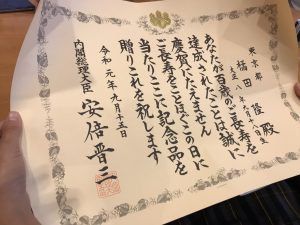 東京都
福田 殿
大正八年九月十日生
あなたが百歳のご長寿を
達成されたことは誠に
慶賀にたえません
ご長寿をことほぐこの日に
当たりここに記念品を
贈りこれを祝します
令和元年九月十五日
内閣総理大臣 安倍晋三